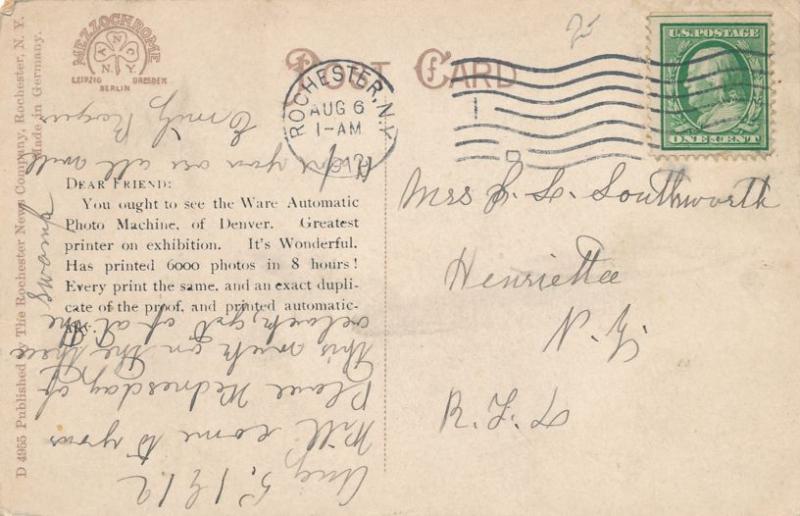 POST CARD
MEZZOCHROME
A N C
N. Y.
LEIPZIG DRESDEN
BERLIN
D 4955 Published by The Rochester News Company, Rochester, N. Y.
Made in Germany.
ROCHESTER, N.Y.
AUG 6
1-AM
U.S. POSTAGE
ONE CENT
25
DEAR FRIEND:
You ought to see the Ware Automatic
Photo Machine, of Denver. Greatest
printer on exhibition. It's Wonderful.
Has printed 6000 photos in 8 hours!
Every print the same, and an exact dupli-
cate of the proof, and printed automatic-
ally.
Mrs S. L. Southworth
Henrietta
N. Y.
R. F. D
Aug 5, 1912
Will come to your
Place Wednesday of
this week on the three
oclock, get of at the
Hope you are all well
Emily